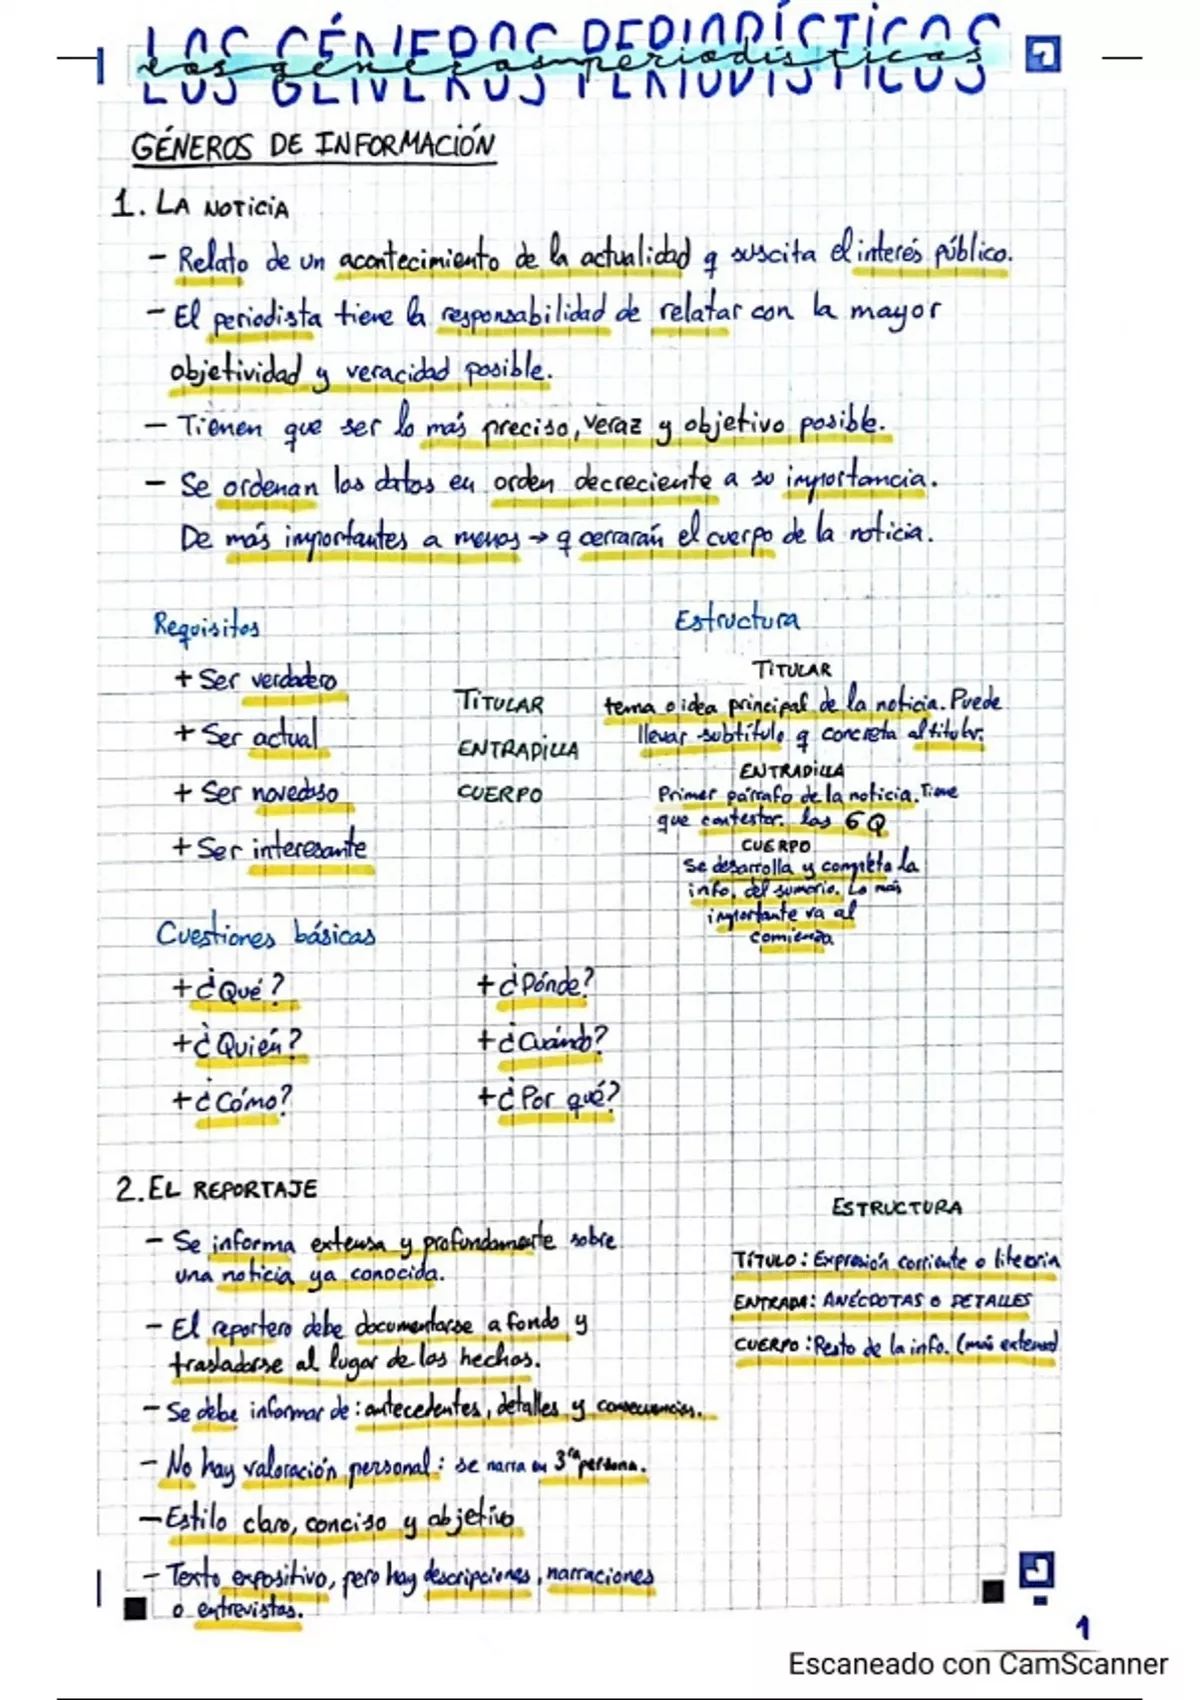 LOS GÉNEROS PERIODÍSTICOS
los géneros periodísticos
GÉNEROS DE INFORMACIÓN
1. LA NOTICIA
- Relato de un acontecimiento de la actualidad q suscita el interés público.
- El periodista tiene la responsabilidad de relatar con la mayor
objetividad y veracidad posible.
- Tienen que ser lo más preciso, veraz y objetivo posible.
- Se ordenan los datos en orden decreciente a su importancia.
De más importantes a menos → q cerrarán el cuerpo de la noticia.
Requisitos
+ Ser verdadero
+ Ser actual
+ Ser novedoso
+ Ser interesante
TITULAR
ENTRADILLA
CUERPO
Estructura
TITULAR
tema o idea principal de la noticia. Puede
llevar subtítulo q concreta al titular.
ENTRADILLA
Primer párrafo de la noticia. Tiene
que contestar. las 6Q
CUERPO
Se desarrolla y completa la
info. del sumario. Lo más
importante va al
comienzo.
Cuestiones básicas
+ ¿Qué?
+ ¿Quién?
+ ¿Cómo?
+ ¿Dónde?
+ ¿Cuándo?
+ ¿Por qué?
2. EL REPORTAJE
- Se informa extensa y profundamente sobre
una noticia ya conocida.
- El reportero debe documentarse a fondo y
trasladarse al lugar de los hechos.
- Se debe informar de: antecedentes, detalles y consecuencias.
- No hay valoración personal: se narra en 3ra persona.
- Estilo claro, conciso y objetivo
- Texto expositivo, pero hay descripciones, narraciones
o entrevistas.
ESTRUCTURA
TÍTULO: Expresión corriente o literaria
ENTRADA: ANÉCDOTAS O DETALLES
CUERPO: Resto de la info. (más extenso)
1
Escaneado con CamScanner